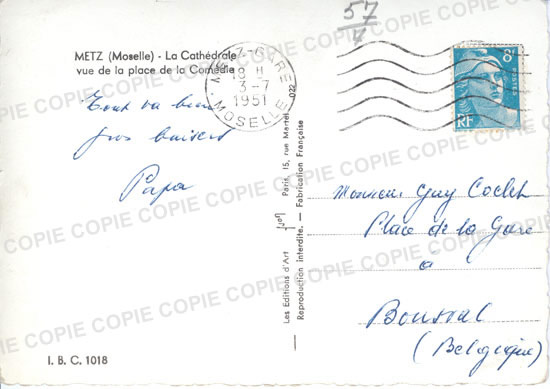 57
METZ (Moselle) - La Cathédrale
vue de la place de la Comédie
METZ-GARE
3-7
1951
MOSELLE
8F
POSTES
RF
Tout va bien
gros baisers
Papa
Monsieur Guy
Place de la Gare
à
Bousval
(Belgique)
Les Editions d'Art Yvon Paris, 15, rue Martel
Reproduction interdite. — Fabrication Française
I. B. C. 1018
COPIE COPIE COPIE COPIE COPIE